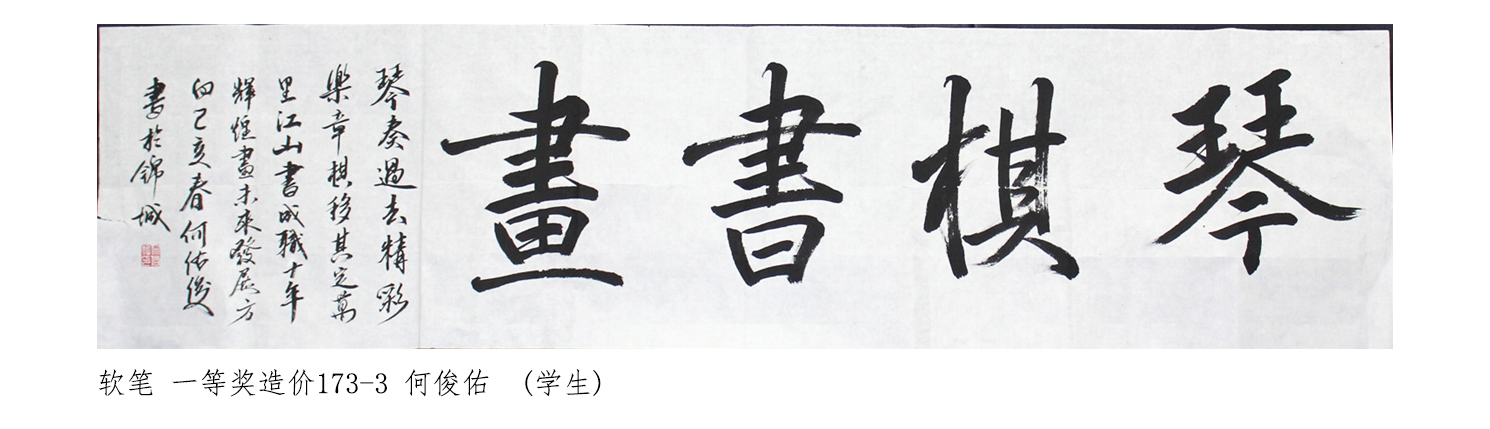 琴棋書畫
琴奏過去精彩
樂章棋移其定萬
里江山書成職十年
輝煌畫未來發展方
向己亥春何佑俊
書於錦城
软笔 一等奖造价173-3 何俊佑 (学生)